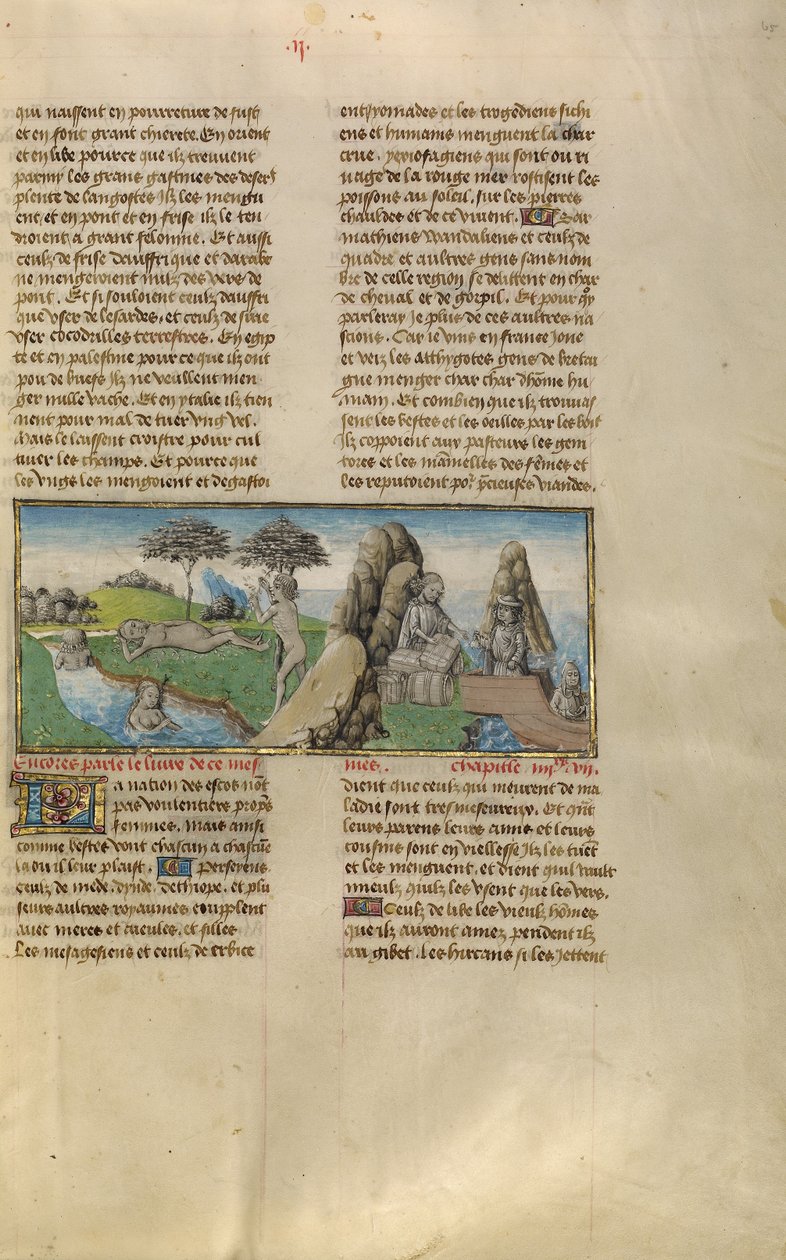 .ii.
65
qui naissent en pourreture de fust
et en font grant chierete. En orient
et en libe pource que ilz treuuent
parmy les grans gastines des desers
plente de langostes Ilz les mengu
ent, et en pont et en frise ilz le ten
droient a grant felonnie. Et aussi
ceulz de frise dauffrique et darabe
ne mengeroient nulz des vers de
pont. Et si souloient ceulz dauffri
que vser de lesardes, et ceulz de sirie
vser cocodrilles terrestres. En egip
te et en palestine pour ce que ilz ont
pou de buefs Ilz ne veullent men
ger nulle vache. Et en ytalie ilz tien
nent pour mal de tuer vng vel.
Mais le laissent croistre pour cul
tiuer les champs. Et pource que
les vngs les mengoient et degastoi
ent, yomades et les trogediens sichi
ens et humains menguent la char
crue. yepiofagiens qui sont ou ri
uage de la rouge mer rostissent les
poissons au soleil, sur les pierres
chauldes et de ce viuent. Sar
mathiens Wandaliens et ceulz de
quadre et aultres gens sans nom
bre de celle region se delittent en char
de cheual et de gorpil. Et pour quoy
parleray Je plus de ces aultres na
cions. Car ie vins en france Jone
et veiz les atthygotes gens de bretai
gne menger char char dhõme hu
main. Et combien que ilz trouuas
sent les bestes et les oeilles par les bois
Ilz coppoient aux pasteurs les geni
tores et les mãmelles des fẽmes et
les reputoient por p̃cieuses viandes.
Encores parle le liure de ce mes
mes. Chapitle iiiixx. vii.
La nation des escos nõt
pas voulentiers propres
femmes. Mais ainsi
comme bestes vont chascun a chascũe
la ou il leur plaist. Perseyens
ceulz de mede. dynde. dethiope. et plu
seurs aultres royaumes couplent
auec meres et taieules, et filles
Les mesagesiens et ceulz de erbice
dient que ceulz qui meurent de ma
ladie sont tres meseureux. Et quãt
leurs parens leurs amis et leurs
cousins sont en viellesse Ilz les tuẽt
et les menguent, et dient quil vault
mieulz quilz les vsent que les vers.
Ceulz de libe les vieulz hõmes
que ilz auront amez pendent ilz
au gibet. Les hircans si les Jettent